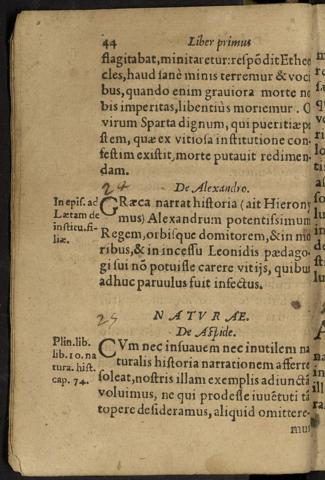 44 Liber primus
flagitabat, minitaretur: respõdit Etheo
cles, haud sanè minis terremur & voci
bus, quando enim grauiora morte no
bis imperitas, libentiùs moriemur. O
virum Sparta dignum, qui pueritiæ pe
stem, quæ ex vitiosa institutione con-
festim existit, morte putauit redimen-
dam.
24
De Alexandro.
In epis. ad
Lætam de
institu. fi-
liæ.
GRæca narrat historia (ait Hierony
mus) Alexandrum potentissimum
Regem, orbisque domitorem, & in mo
ribus, & in incessu Leonidis pædago-
gi sui nõ potuisse carere vitijs, quibus
adhuc paruulus fuit infectus.
25
NATVRAE.
De Aspide.
Plin. lib.
lib. 10. na
tura. hist.
cap. 74.
CVm nec insuauem nec inutilem na
turalis historia narrationem afferre
soleat, nostris illam exemplis adiunctã
voluimus, ne qui prodesse iuuẽtuti tã
topere desideramus, aliquid omittere-
mus